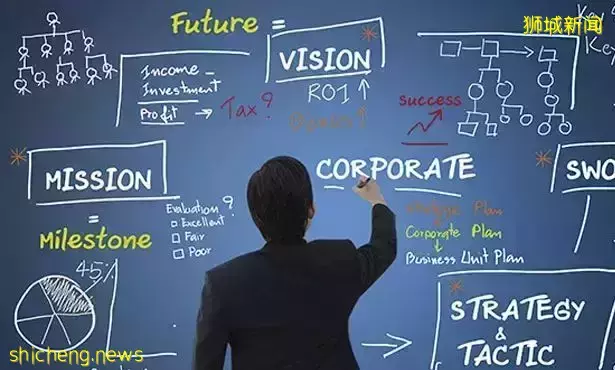 狮城新闻
Future =
VISION
ROI ↑
Key
Income
Investment
Profit → Tax?
success
MISSION
=
Milestone
CORPORATE
SWO
Evaluation?
Excellent
Fair
Poor
Plan
Corporate Plan
Business Unit Plan
45%
STRATEGY
&
TACTIC
shicheng.news